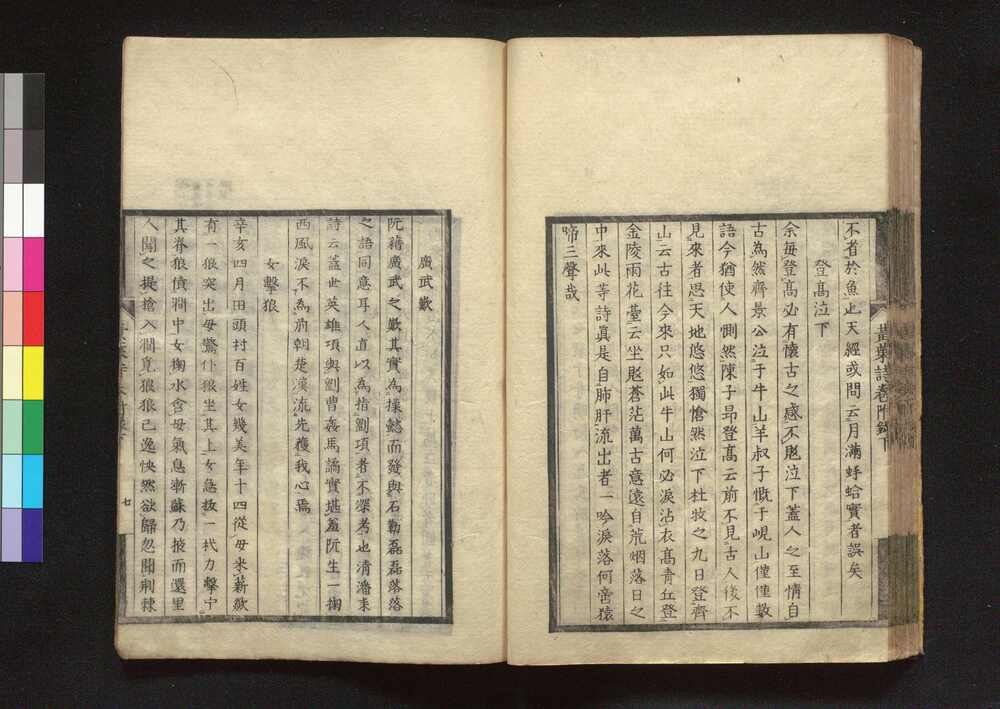 不者於魚也天經或問云月滿蜉蛤實者誤矣
登高泣下
余每登高必有懷古之感不覺泣下蓋人之至情自
古爲然齊景公泣于牛山羊叔子慨于峴山僅僅數
語今猶使人惻然陳子昂登高云前不見古人後不
見來者思天地悠悠獨愴然泣下杜牧之九日登齊
山云古往今來只如此牛山何必淚沾衣高青丘登
金陵雨花臺云坐覺蒼茫萬古意遠自荒烟落日之
中來此等詩眞是自肺肝流出者一吟淚落何啻猿
啼三聲哉
黃葉詩卷附錄下
廣武歎
阮籍廣武之歎其實爲操懿而發與石勒磊磊落落
之語同意耳人直以爲指劉項者不深考也清潘耒
詩云蓋世英雄項與劉曹姦馬譎實堪羞阮生一掬
西風淚不爲前朝楚漢流先獲我心焉
女擊狼
辛亥四月田頭村百姓女幾美年十四從母采薪歘
有一狼突出母驚仆狼坐其上女急拔一杙力擊中
其脊狼僨澗中女掬水含母氣息漸蘇乃掖而還里
人聞之提槍入澗覓狼狼已逸怏然欲歸忽聞荆棘
七